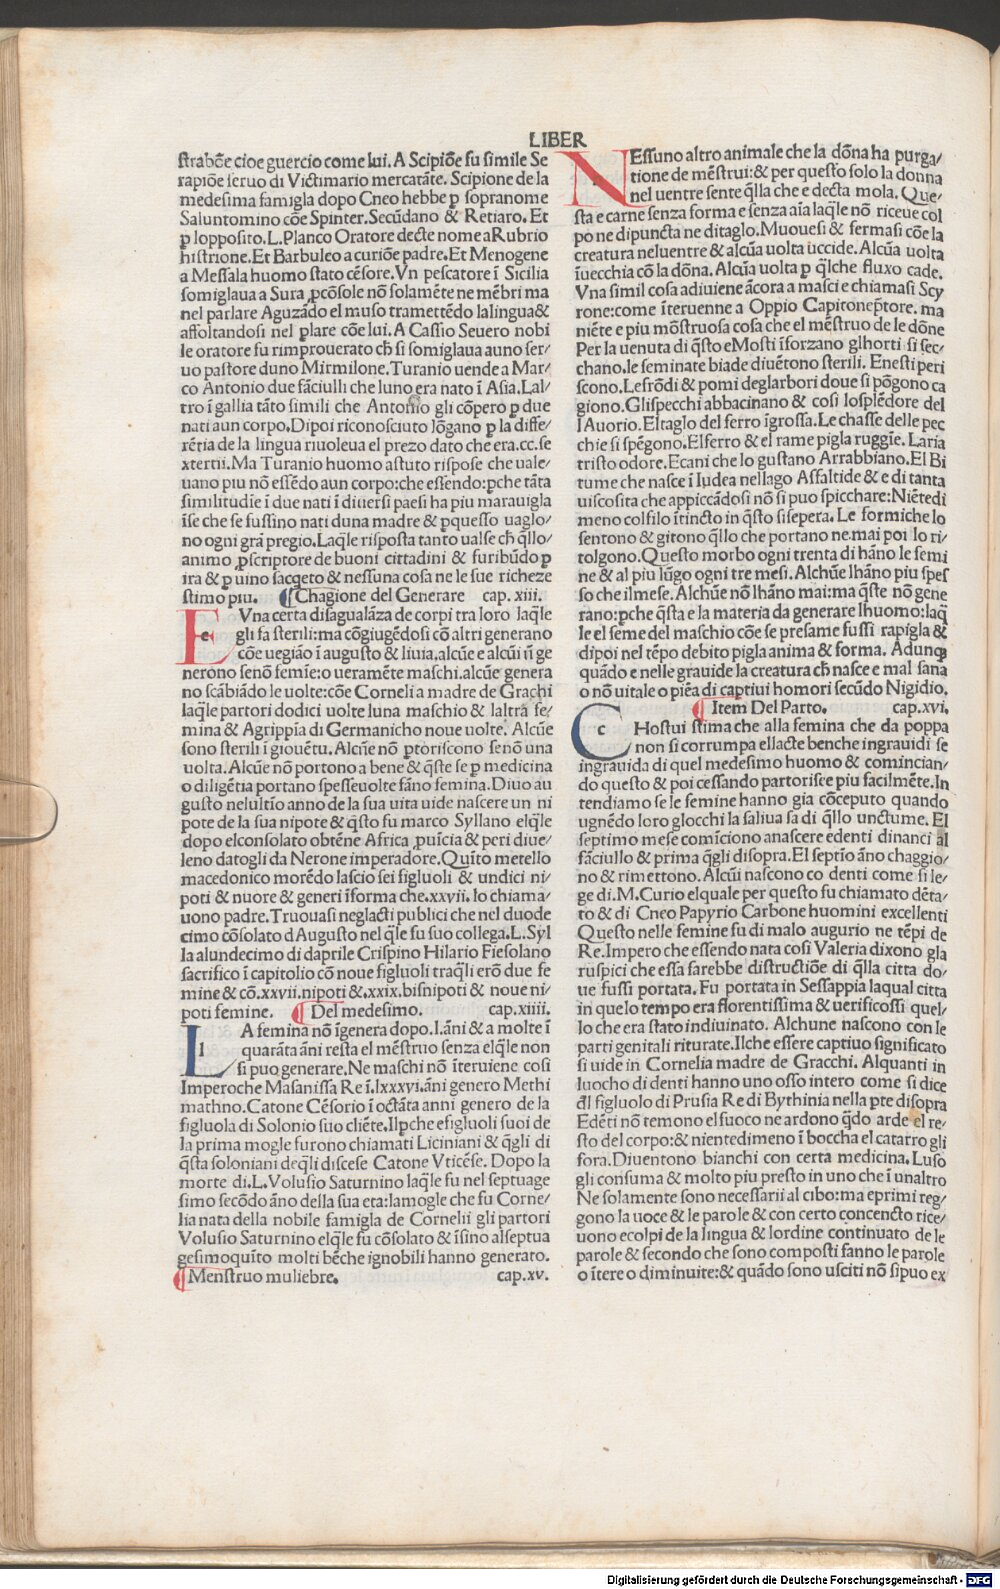 LIBER
ſtrabōe cioe guercio come lui. A Scipiōe fu ſimile Se
rapiōe ſeruo di Victimario mercatāte. Scipione de la
medeſima famigla dopo Cneo hebbe ꝑ ſopranome
Saluntomino cōe Spinter. Secūdano & Retiaro. Et
ꝑ lo oppoſito. L. Planco Oratore decte nome a Rubrio
hiſtrione. Et Barbuleo a curiōe padre. Et Menogene
a Meſſala huomo ſtato cēſore. Vn peſcatore ī Sicilia
ſomiglaua a Sura ꝓcōſole nō ſolamēte ne mēbri ma
nel parlare Aguzādo el muſo tramettēdo la lingua &
affoltandoſi nel ꝑlare cōe lui. A Caſſio Seuero nobi
le oratore fu rimprouerato ch̄ ſi ſomiglaua a uno ſer/
uo paſtore duno Mirmilone. Turanio uende a Mar/
co Antonio due fāciulli che luno era nato ī Aſia. Lal/
tro ī gallia tāto ſimili che Antonio gli cōpero ꝑ due
nati aun corpo. Dipoi riconoſciuto lōgano ꝑ la diffe/
rētia de la lingua riuoleua el prezo dato che era. cc. ſe
xtertii. Ma Turanio huomo aſtuto riſpoſe che uale/
uano piu nō eſſēdo aun corpo: che eſſendo: ꝑche tāta
ſimilitudīe ī due nati ī diuerſi paeſi ha piu marauigla
īſe che ſe fuſſino nati duna madre & ꝑqueſſo uaglo/
no ogni grā pregio. Laq̄le riſpoſta tanto ualſe ch̄ q̄llo/
animo ꝓſcriptore de buoni cittadini & furibūdo ꝑ
ira & ꝑ uino ſacq̄eto & neſſuna coſa ne le ſue richeze
ſtimo piu. ¶ Chagione del Generare cap. xiii.
E e Vna certa diſagualāza de corpi tra loro laq̄le
gli fa ſterili: ma cōgiugēdoſi cō altri generano
cōe uegiāo ī auguſto & liuia. alcūe e alcūi īi ge
nerono ſenō femīe: o ueramēte maſchi. alcūe genera
no ſcābiādo le uolte: cōe Cornelia madre de Grachi
laq̄le partori dodici uolte luna maſchio & laltra fe/
mina & Agrippīa di Germanicho noue uolte. Alcūe
ſono ſterili ī giouētu. Alcūe nō ꝑtoriſcono ſe nō una
uolta. Alcūe nō portono a bene & q̄ſte ſe ꝑ medicina
o diligētia portano ſpeſſeuolte fāno femina. Diuo au
guſto nelultīo anno de la ſua uita uide naſcere un ni
pote de la ſua nipote & q̄ſto fu marco Syllano elq̄le
dopo elconſolato obtēne Africa ꝓuīcia & peri diue/
leno datogli da Nerone imperadore. Quīto metello
macedonico morēdo laſcio ſei figluoli & undici ni/
poti & nuore & generi īforma che. xxvii. lo chiama/
uono padre. Truouaſi neglacti publici che nel duode
cimo cōſolato dAuguſto nel q̄le fu ſuo collega. L. Syl
la alundecimo di daprile Criſpino Hilario Fieſolano
ſacrifico ī capitolio cō noue figluoli traq̄li erō due fe
mine & cō. xxvii. nipoti &. xxix. biſnipoti & noue ni/
poti femine. ¶ Del medeſimo. cap. xiiii.
L l A femina nō īgenera dopo. l. āni & a molte ī
quarāta āni reſta el mēſtruo ſenza elq̄le non
ſi puo generare. Ne maſchi nō īteruiene coſi
Imperoche Maſaniſſa Re ī. lxxxvi. āni genero Methi
mathno. Catone Cēſorio ī octāta anni genero de la
figluola di Solonio ſuo cliēte. Ilꝑche efigluoli ſuoi de
la prima mogle furono chiamati Liciniani & q̄gli di
q̄ſta ſoloniani deq̄li diſceſe Catone Vticēſe. Dopo la
morte di. L. Voluſio Saturnino laq̄le fu nel ſeptuage
ſimo ſecōdo āno della ſua eta: lamogle che fu Corne/
lia nata della nobile famigla de Cornelii gli partori
Voluſio Saturnino elq̄le fu cōſolato & īſino alſeptua
geſimoquīto molti bēche ignobili hanno generato.
¶ Menſtruo muliebre. cap. xv.
N Eſſuno altro animale che la dōna ha purga/
tione de mēſtrui: & per queſto ſolo la donna
nel uentre ſente q̄lla che e decta mola. Que/
ſta e carne ſenza forma e ſenza aīa laq̄le nō riceue col
po ne dipuncta ne ditaglo. Muoueſi & fermaſi cōe la
creatura neluentre & alcūa uolta uccide. Alcūa uolta
īuecchia cō la dōna. Alcūa uolta ꝑ q̄lche fluxo cade.
Vna ſimil coſa adiuiene ācora a maſci e chiamaſi Scy
rone: come īteruenne a Oppio Capitoneptore. ma
niēte e piu mōſtruoſa coſa che el mēſtruo de le dōne
Per la uenuta di q̄ſto e Moſti īforzano glhorti ſi ſec/
chano. le ſeminate biade diuētono ſterili. Eneſti peri
ſcono. Lefrōdi & pomi deglarbori doue ſi pōgono ca
giono. Gliſpecchi abbacinano & coſi loſplēdore del
lAuorio. El taglo del ferro īgroſſa. Le chaſſe delle pec
chie ſi ſpēgono. Elferro & el rame pigla ruggīe. Laria
triſto odore. Ecani che lo guſtano Arrabbiano. El Bi
tume che naſce ī Iudea nellago Aſfaltide & e di tanta
uiſcoſita che appiccādoſi nō ſi puo ſpicchare: Niētedi
meno colfilo ītincto in q̄ſto ſiſepera. Le formiche lo
ſentono & gitono q̄llo che portano ne. mai poi lo ri/
tolgono. Queſto morbo ogni trenta di hāno le femi
ne & al piu lūgo ogni tre meſi. Alchūe lhāno piu ſpeſ
ſo che ilmeſe. Alchūe nō lhāno mai: ma q̄ſte nō gene
rano: ꝑche q̄ſta e la materia da generare lhuomo: laq̄
le el ſeme del maſchio cōe ſe preſame fuſſi rapigla &
dipoi nel tēpo debito pigla anima & forma. Adunq̨
quādo e nelle grauide la creatura ch̄ naſce e mal ſana
o nō uitale o piēa di captiui homori ſecūdo Nigidio.
¶ Item Del Parto. cap. xvi.
C c Hoſtui ſtima che alla femina che da poppa
non ſi corrumpa ellacte benche ingrauidi ſe
ingrauida di quel medeſimo huomo & comincian/
do queſto & poi ceſſando partoriſce piu facilmēte. In
tendiamo ſe le femine hanno gia cōceputo quando
ugnēdo loro glocchi la ſaliua ſa di q̄llo unctume. El
ſeptimo meſe comīciono anaſcere edenti dinanci al
fāciullo & prima q̄gli diſopra. El ſeptīo āno chaggio/
no & rimettono. Alcūi naſcono co denti come ſi le/
ge di. M. Curio elquale per queſto fu chiamato dēta/
to & di Cneo Papyrio Carbone huomini excellenti
Queſto nelle femine fu di malo augurio ne tēpi de
Re. Impero che eſſendo nata coſi Valeria dixono gla
ruſpici che eſſa ſarebbe diſtructiōe di q̄lla citta do/
ue fuſſi portata. Fu portata in Seſſappia laqual citta
in quelo tempo era florentiſſima & uerificoſſi quel/
lo che era ſtato indiuinato. Alchune naſcono con le
parti genitali riturate. Ilche eſſere captiuo ſignificato
ſi uide in Cornelia madre de Gracchi. Alquanti in
luocho di denti hanno uno oſſo intero come ſi dice
đl figluolo di Pruſia Re di Bythinia nella ꝑte diſopra
Edēti nō temono el fuoco ne ardono q̄do arde el re/
ſto del corpo: & nientedimeno ī boccha el catarro gli
fora. Diuentono bianchi con certa medicina. Luſo
gli conſuma & molto piu preſto in uno che ī unaltro
Ne ſolamente ſono neceſſarii al cibo: ma eprimi reg/
gono la uoce & le parole & con certo concencto rice/
uono ecolpi de la lingua & lordine continuato de le
parole & ſecondo che ſono compoſti fanno le parole
o ītere o diminuite: & quādo ſono uſciti nō ſipuo ex
Digitalisierung gefördert durch die Deutsche Forschungsgemeinschaft - DFG